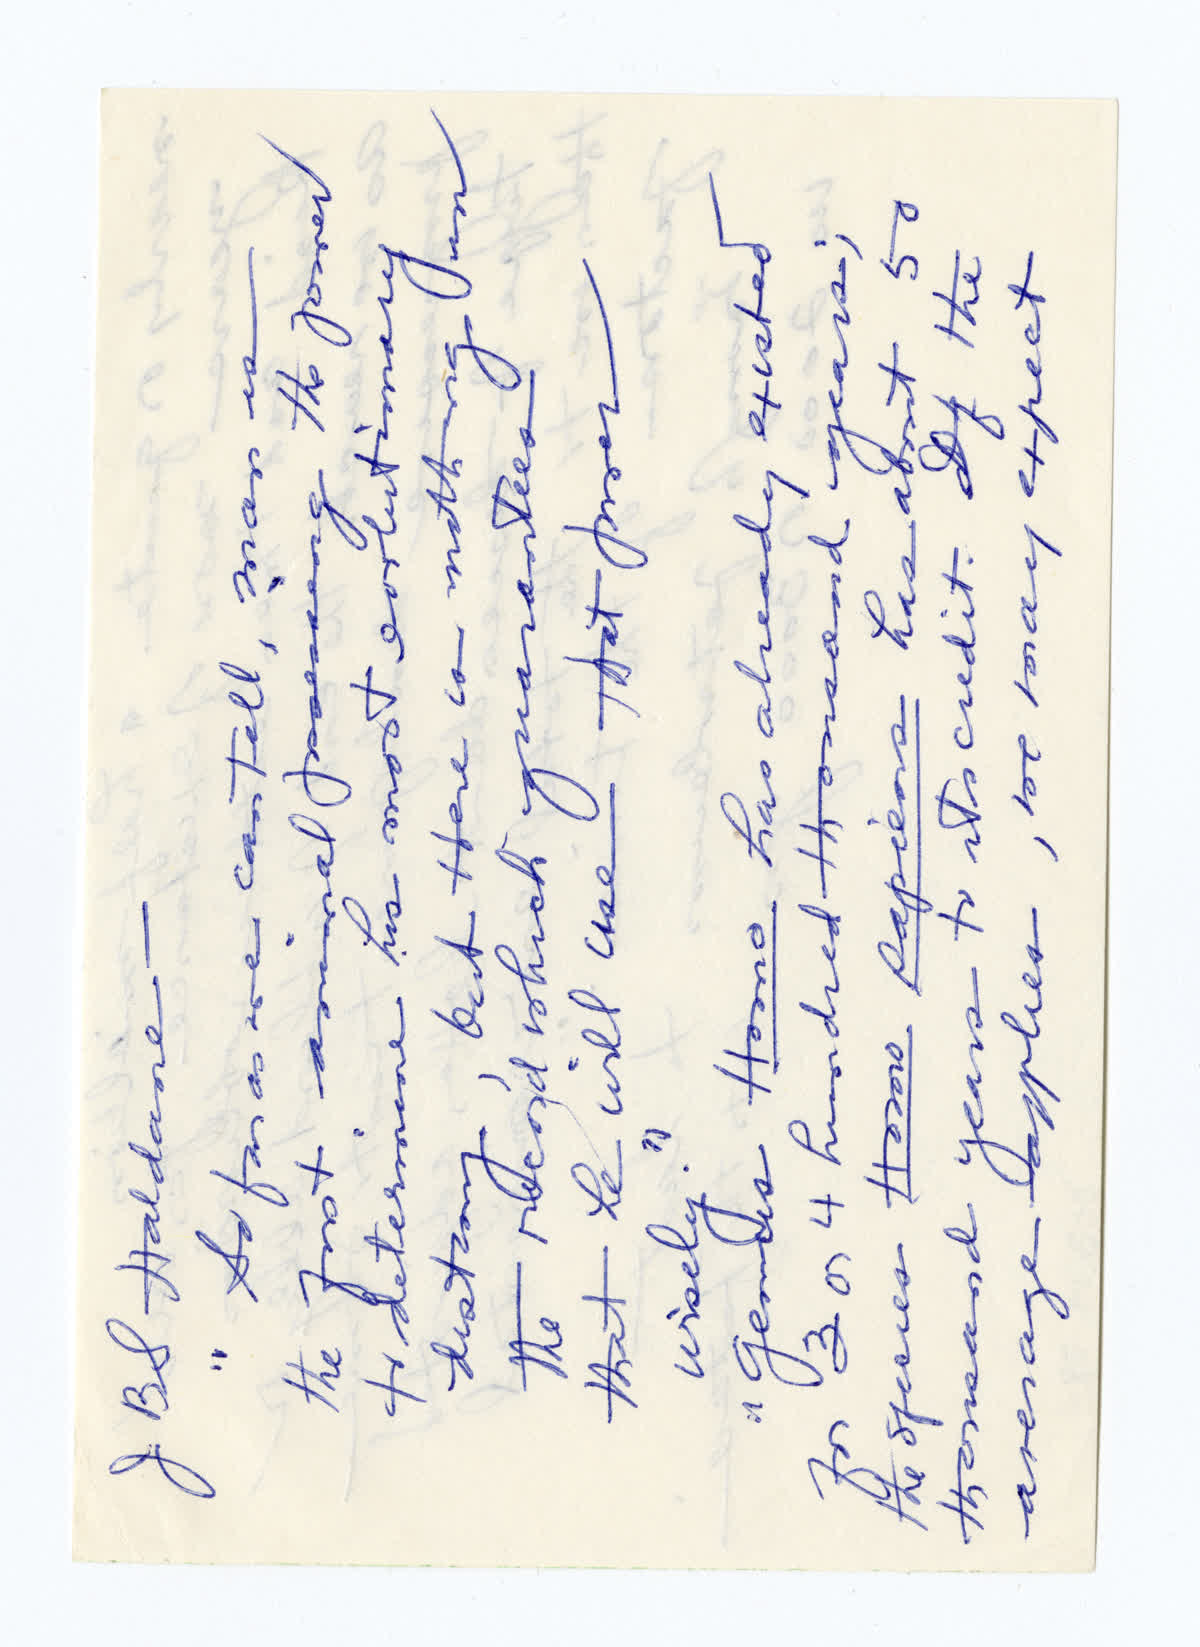 J BS Haldane—
" So far as we can tell, man is
the first animal possessing the power
to determine his most evolutionary
destiny, but there is nothing in
the record which guarantees
that he will use that power
wisely."
"Genus Homo has already existed
for 3 or 4 hundred thousand years;
the species Homo Sapiens has about 50
thousand years to its credit. If the
average applies, we may expect